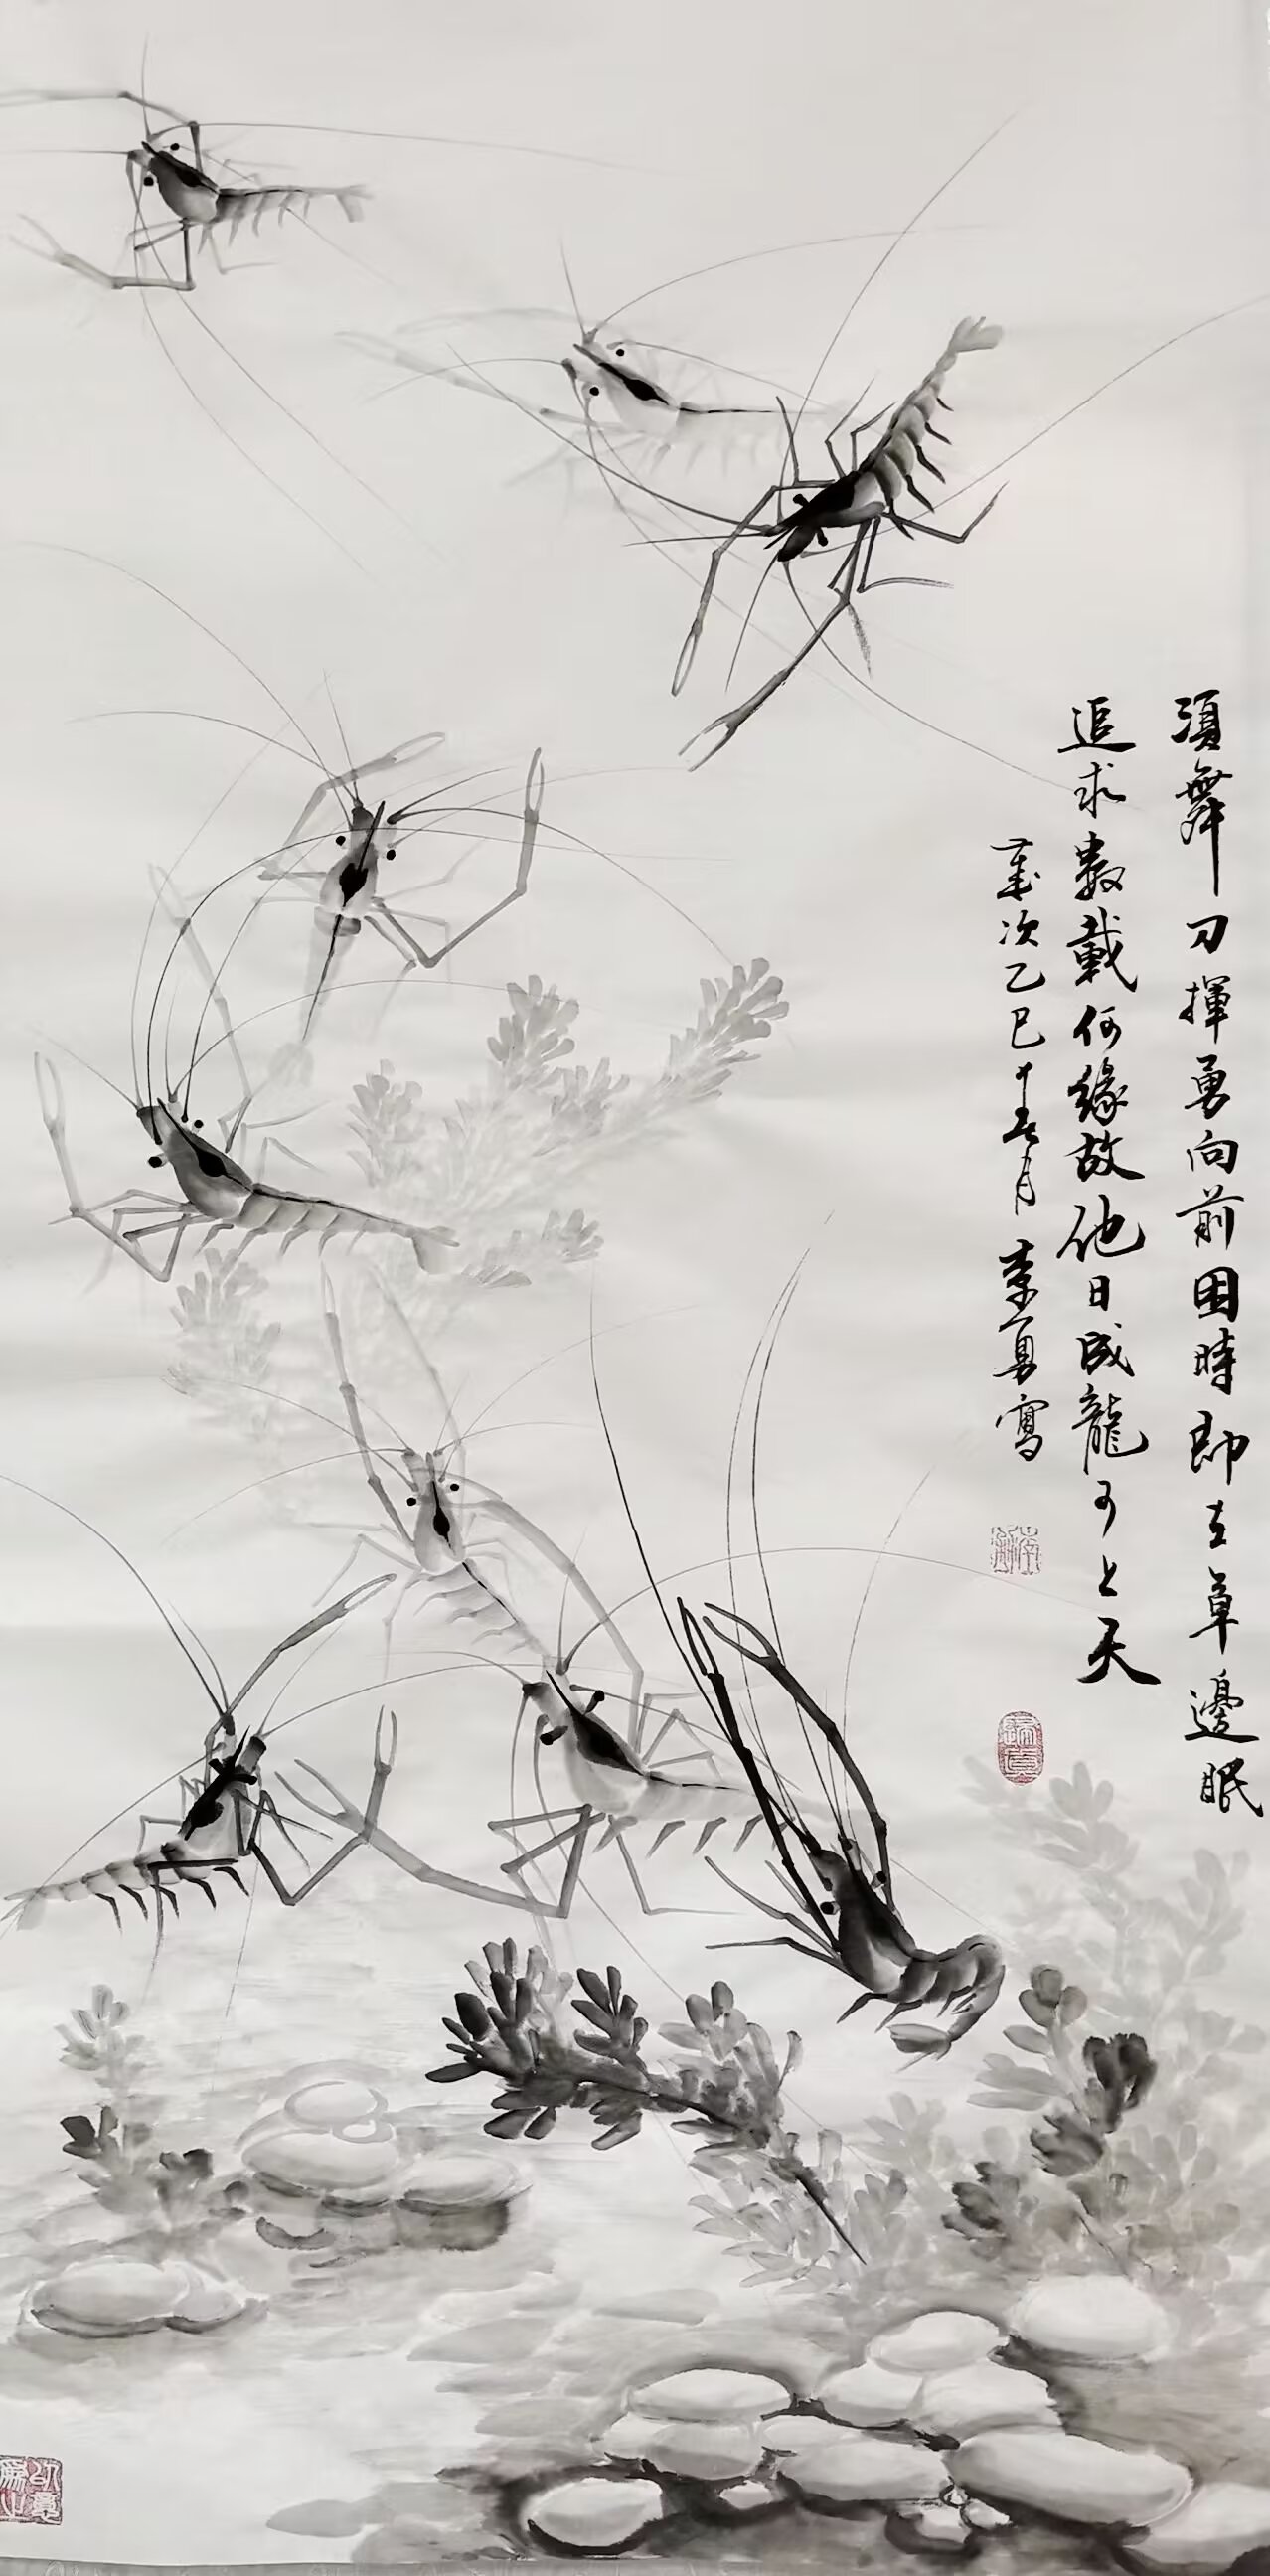 須舞刀揮勇向前困時即在草邊眠
追求數載何緣故他日成龍可上天
歲次乙巳十五月 李勇寫